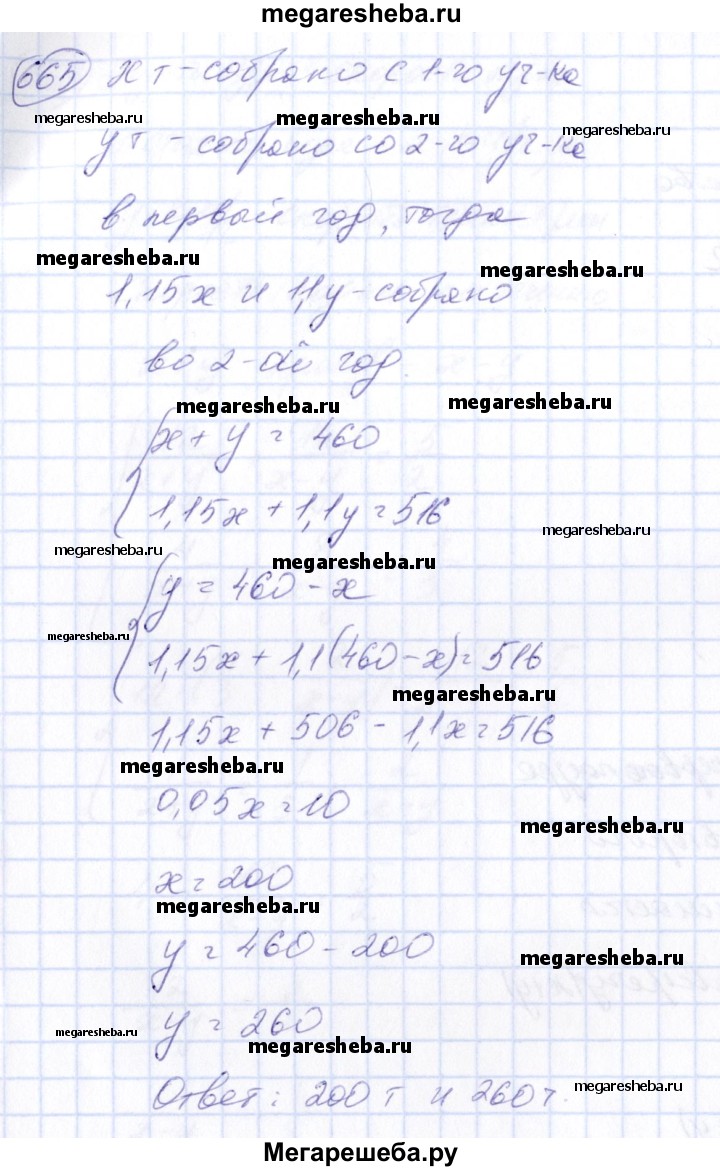 megaresheba.ru
665 x т - собрано с 1-го уч-ка
megaresheba.ru megaresheba.ru megaresheba.ru
y т - собрано со 2-го уч-ка
в первый год, тогда
megaresheba.ru megaresheba.ru
1,15x и 1,1y - собрано
во 2-ой год.
megaresheba.ru megaresheba.ru
x + y = 460
1,15x + 1,1y = 516
megaresheba.ru
megaresheba.ru megaresheba.ru
y = 460 - x
megaresheba.ru
1,15x + 1,1(460 - x) = 516
megaresheba.ru
1,15x + 506 - 1,1x = 516
megaresheba.ru
0,05x = 10
megaresheba.ru
x = 200
megaresheba.ru
y = 460 - 200
megaresheba.ru
y = 260
megaresheba.ru megaresheba.ru
Ответ: 200 т и 260 т.
megaresheba.ru
Мегарешеба.ру